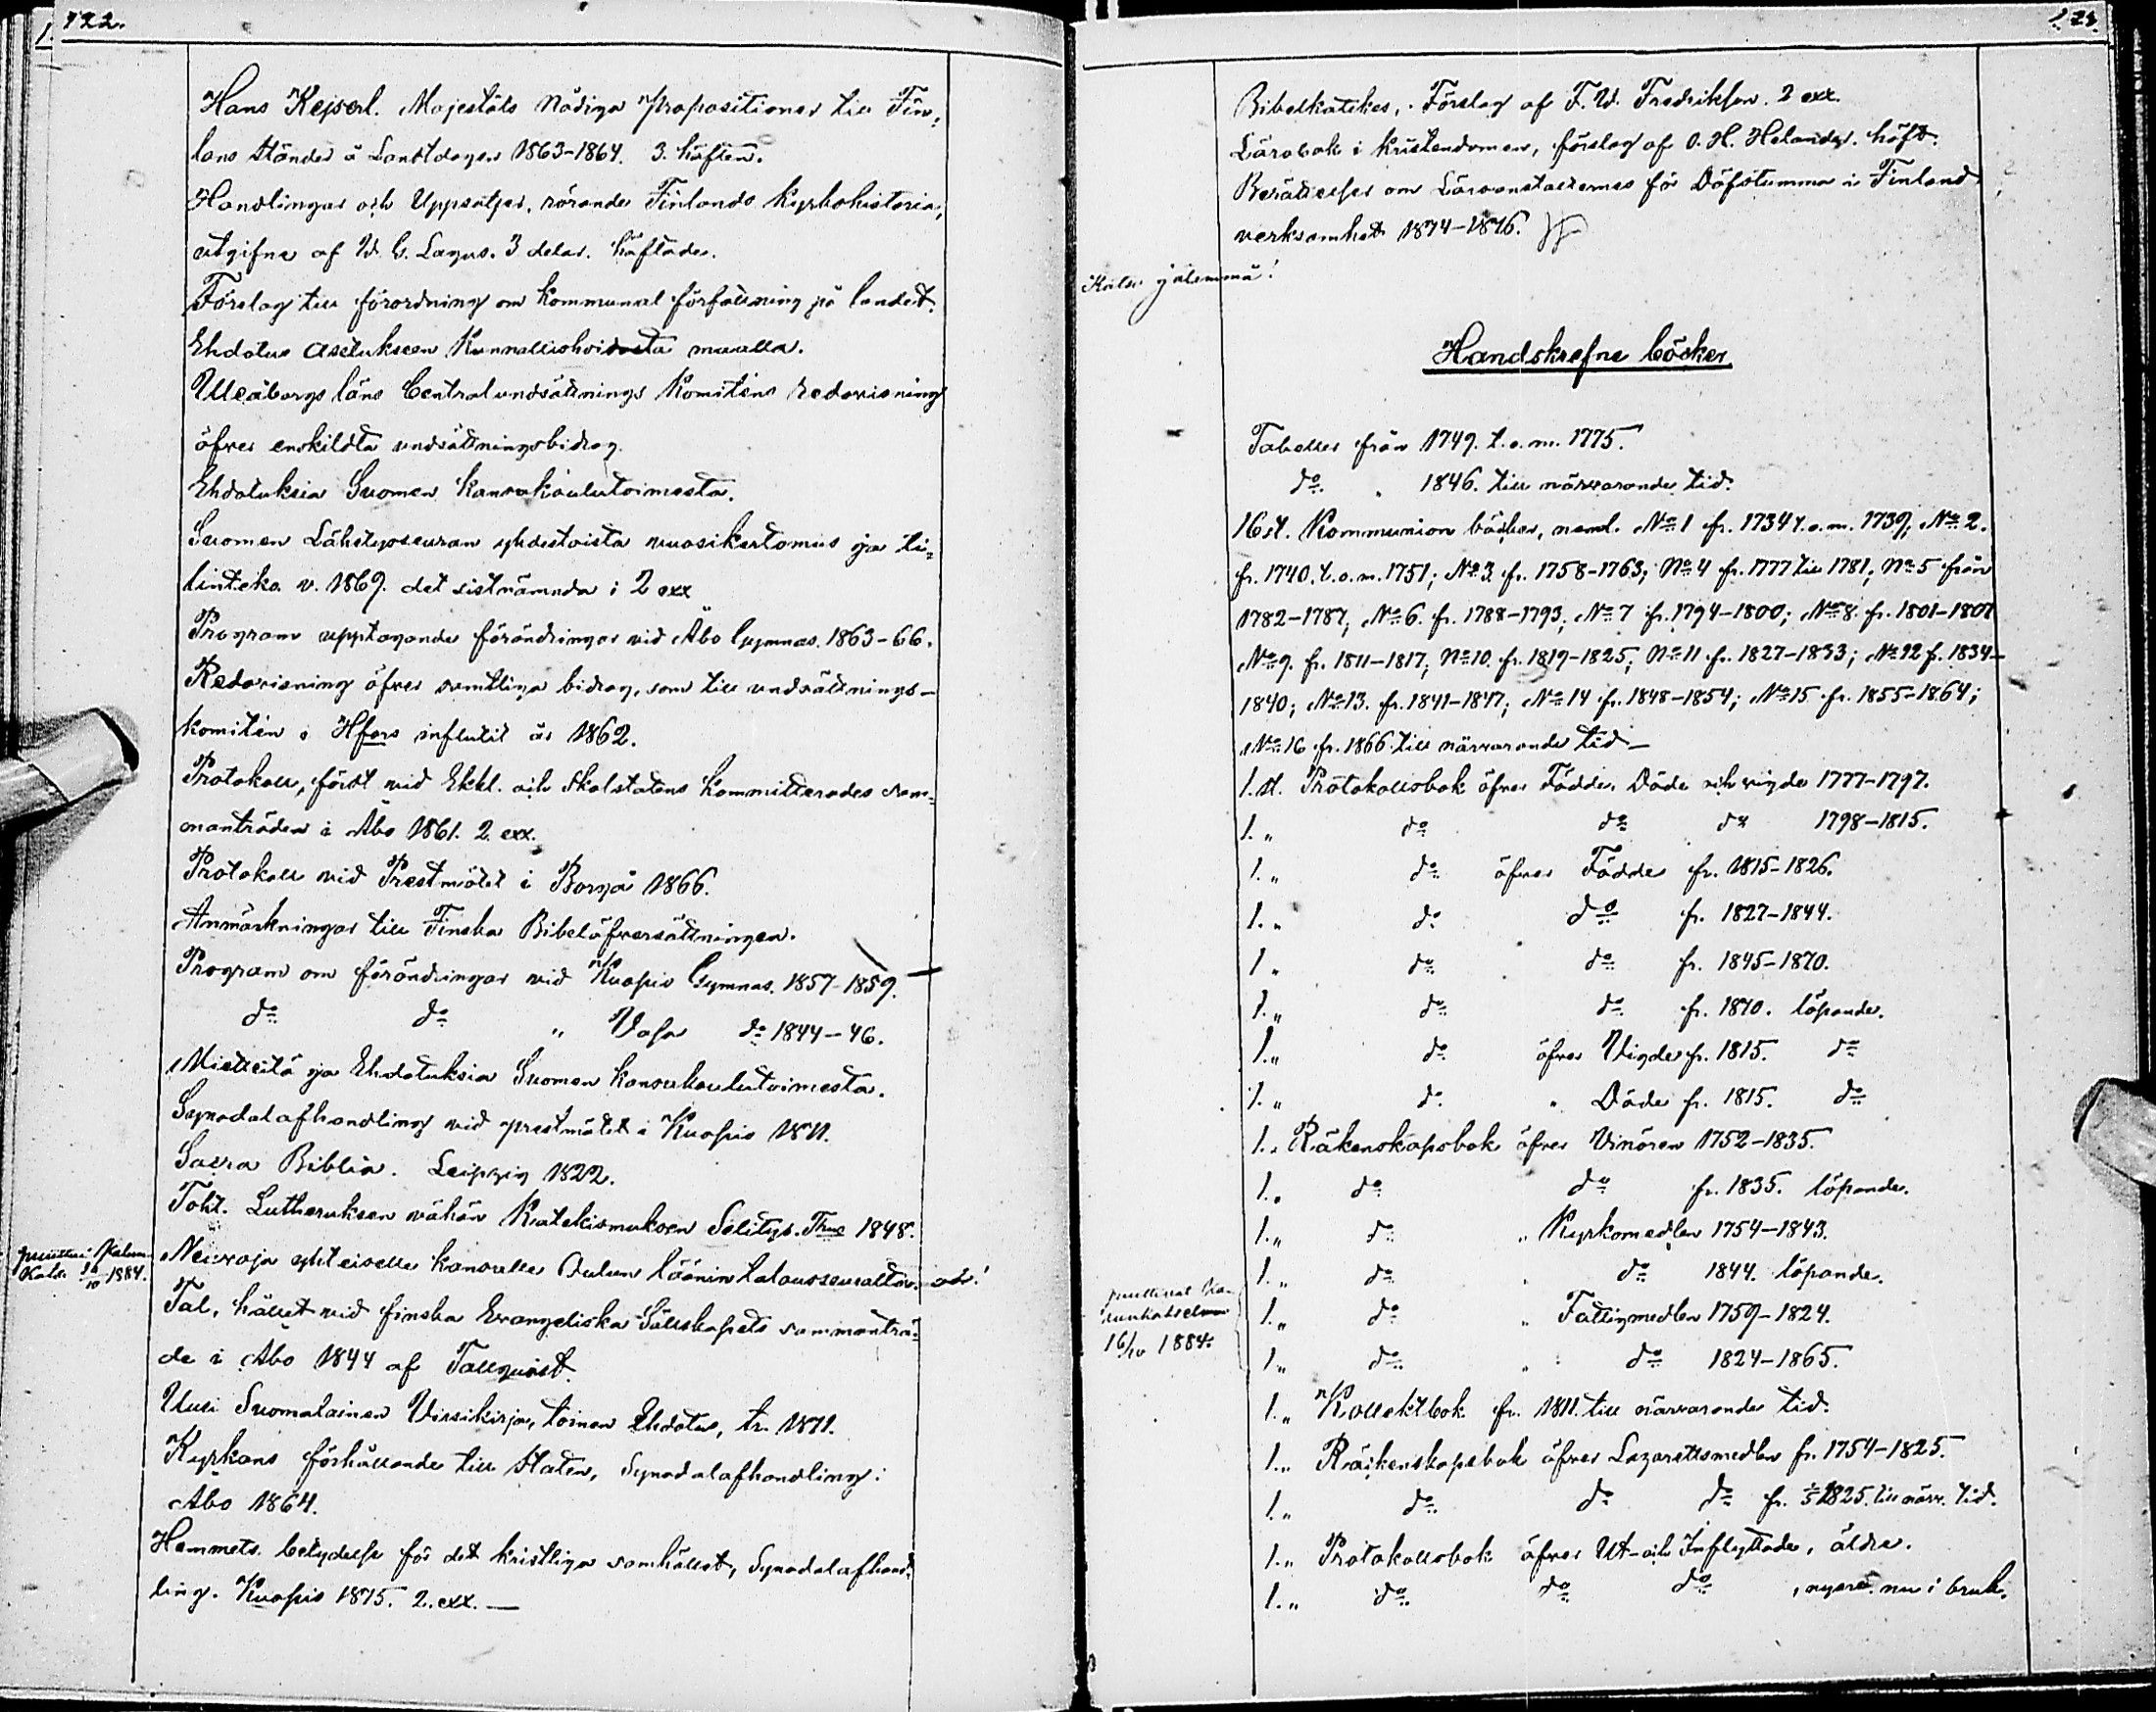 122.
Hans Kejserl. Majestäts Nådiga Propositioner till Fin-
lans Ständer å Landtdagen 1863-1864. 3. häften.
Handlingar och Uppsatser, rörande Finlands Kyrkohistoria,
utgifne af W. G. Lagus. 3 delar. häftade.
Förslag till förordning om Kommunal författning på landet.
Ehdotus Asetukseen Kunnallishoidosta maalla.
Uleåborgs läns Centralundsättnings Komiténs redovisning
öfver enskildta undsättningsbidrag.
Ehdotuksia Suomen Kansakoulutoimesta.
Suomen Lähetysseuran yhdestoista vuosikertomus ja ti-
linteko v. 1869. det sistnämnda i 2 exx
Program upptagande förändringar vid Åbo Gymnas. 1863-66.
Redovisning öfver samtliga bidrag, som till undsättnings-
komitén i Hfors influtit år 1862.
Protokoll, fördt vid Ekkl. och Skolstatens Kommitterades sam-
manträden i Åbo 1861. 2 exx.
Protokoll vid Prestmötet i Borgå 1866.
Anmärkningar till Finska Bibelöfversättningen.
Program om förändringar vid Kuopio Gymnas. 1857-1859.
do do " Vasa do 1844-46.
Mietteitä ja Ehdotuksia Suomen kansakoulutoimesta.
Synodalafhandling vid prestmötet i Kuopio 1871.
Sacra Biblia. Leipzig 1822.
Toht. Lutheruksen vähän Katekismuksen Selitys. 1848.
puuttui Kalun
Kats. 16/10 1884.
Neuvoja yhteiselle kansalle Oulun läänin talousseuralta.
Tal, hållet vid finska Evangeliska Sällskapets sammanträ-
de i Åbo 1844 af Tallqvist.
Uusi Suomalainen Virsikirja, toinen Ehdotus, tr. 1871.
Kyrkans förhållande till Staten, Synodalafhandling i
Åbo 1864.
Hemmets betydelse för det kristliga samhället, Synodalafhand-
ling. Kuopio 1875. 2. exx. —
123.
Bibelkatekes, Förslag af F. W. Fredriksson. 2 exx.
Lärobok i kristendomen, förslag af O. H. Helander. häft.
Berättelser om Läroanstalternas för Döfstumma i Finland
verksamhet 1874-1876.
Katso jälemmä!
Handskrefne böcker
Tabeller från 1749. t.o.m. 1775.
do. " 1846. till närvarande tid.
16 st. Kommunion böcker, neml. No 1 fr. 1734 t.o.m. 1739; No 2.
fr. 1740. t.o.m. 1751; No 3 fr. 1758-1763; No 4 fr. 1777 till 1781; No 5 från
1782-1787; No 6. fr. 1788-1793; No 7 fr. 1794-1800; No 8. fr. 1801-1807
No 9. fr. 1811-1817; No 10. fr. 1819-1825; No 11 fr. 1827-1833; No 12 f. 1834-
1840; No 13. fr. 1841-1847; No 14 fr. 1848-1854; No 15 fr. 1855-1864;
No 16 fr. 1866 till närvarande tid—
1. st. Protokollsbok öfver Födde, Döde och vigde 1777-1797.
1. " do do do 1798-1815.
1. " do öfver Födde fr. 1815-1826.
1. " do do fr. 1827-1844.
1 " do do fr. 1845-1870.
1. " do do fr. 1870. löpande.
1. " do öfver Vigde fr. 1815. do
1. " do " Döde fr. 1815. do
1. " Räkenskapsbok öfver Vinören 1752-1835.
1. " do do fr. 1835. löpande.
1. " do " Kyrkomedlen 1754-1843.
1. " do " do 1844. löpande.
puuttuvat Ka-
lunkatselm
16/10 1884.
1. " do " Fattigmedlen 1759-1824.
1. " do " do 1824-1865.
1. " Kollektbok fr. 1811. till närvarande tid.
1. " Räkenskapsbok öfver Lazarettsmedlen fr. 1754-1825.
1. " do do do fr. 1825. till närv. tid.
1. " Protokollsbok öfver Ut- och Inflyttade, äldre.
1. " do do do , nyare. nu i bruk.